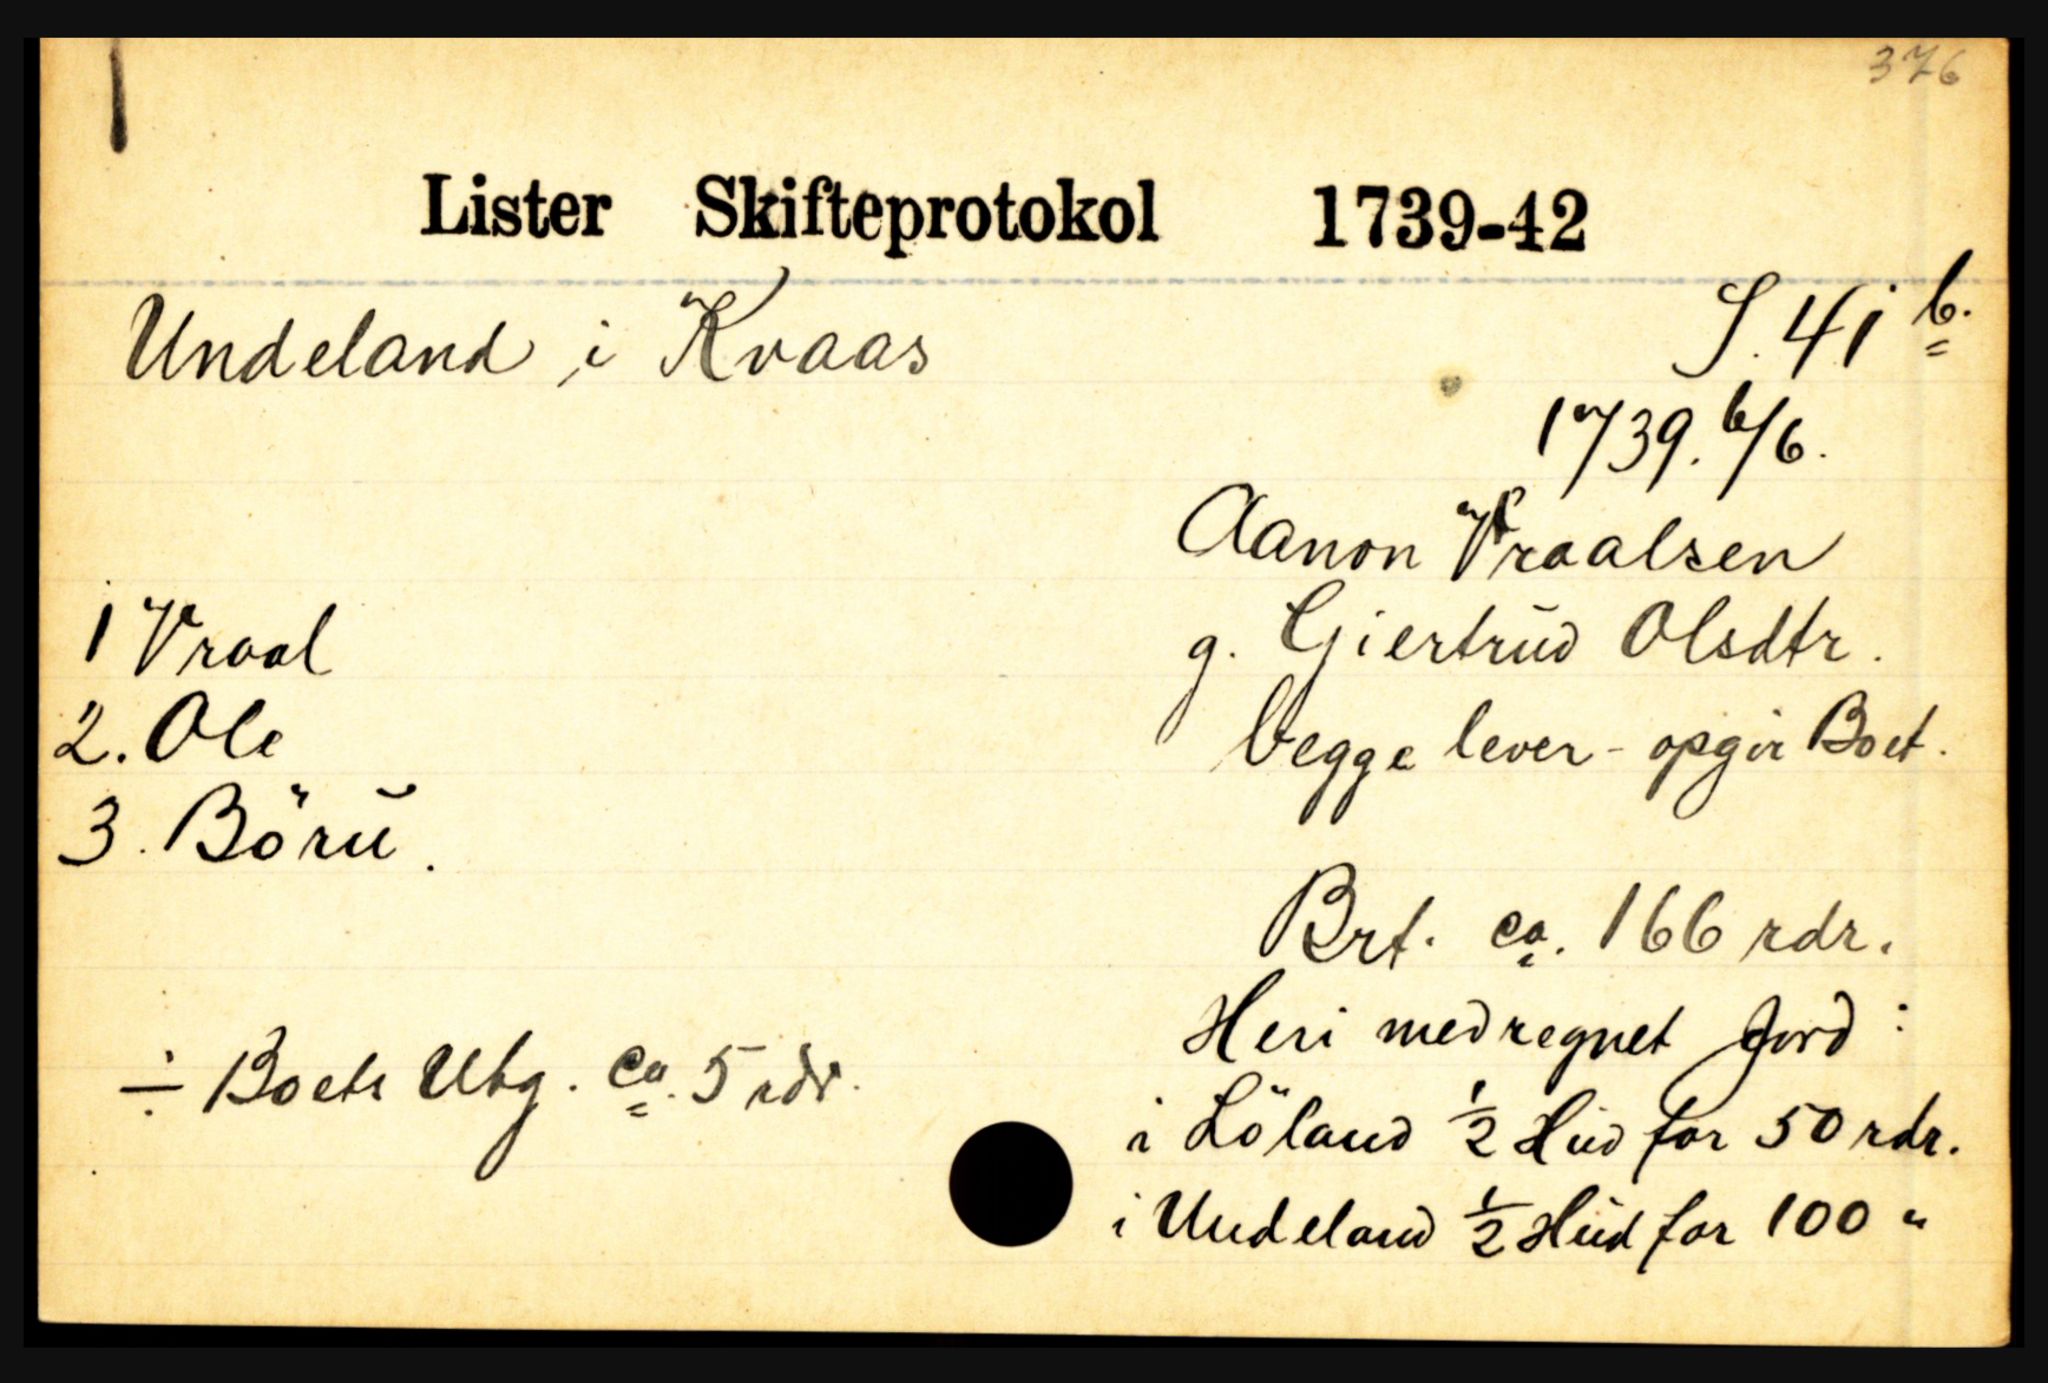 376
Lister Skifteprotokol 1739-42
Undeland i Kvaas
S. 41 b.
1739. 6/6.
Aanon Vraalsen
g. Gjertrud Olsdtr.
begge lever - opgir Boet.
1 Vraal
2. Ole
3. Böru.
Brt. ca. 166 rdr.
Heri medregnet Jord:
i Löland 1/2 Hud for 50 rdr.
i Undeland 1/2 Hud for 100 "
÷ Boets Utg. ca. 5 rdr.